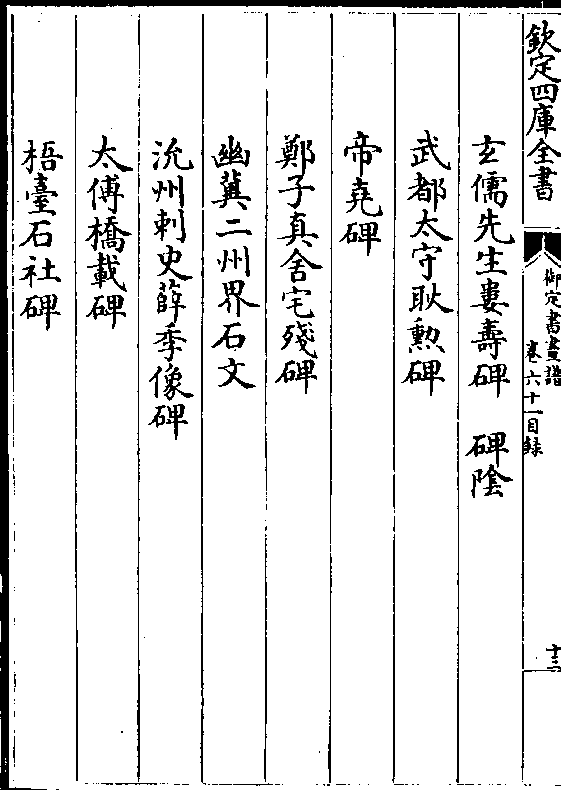 欽定四庫全書
御定書畫譜
卷六十一目録
十三
玄儒先生婁壽碑　碑陰
武都太守耿勲碑
帝堯碑
鄭子真舍宅殘碑
幽冀二州界石文
沇州刺史薛季像碑
太傅橋載碑
梧臺石社碑